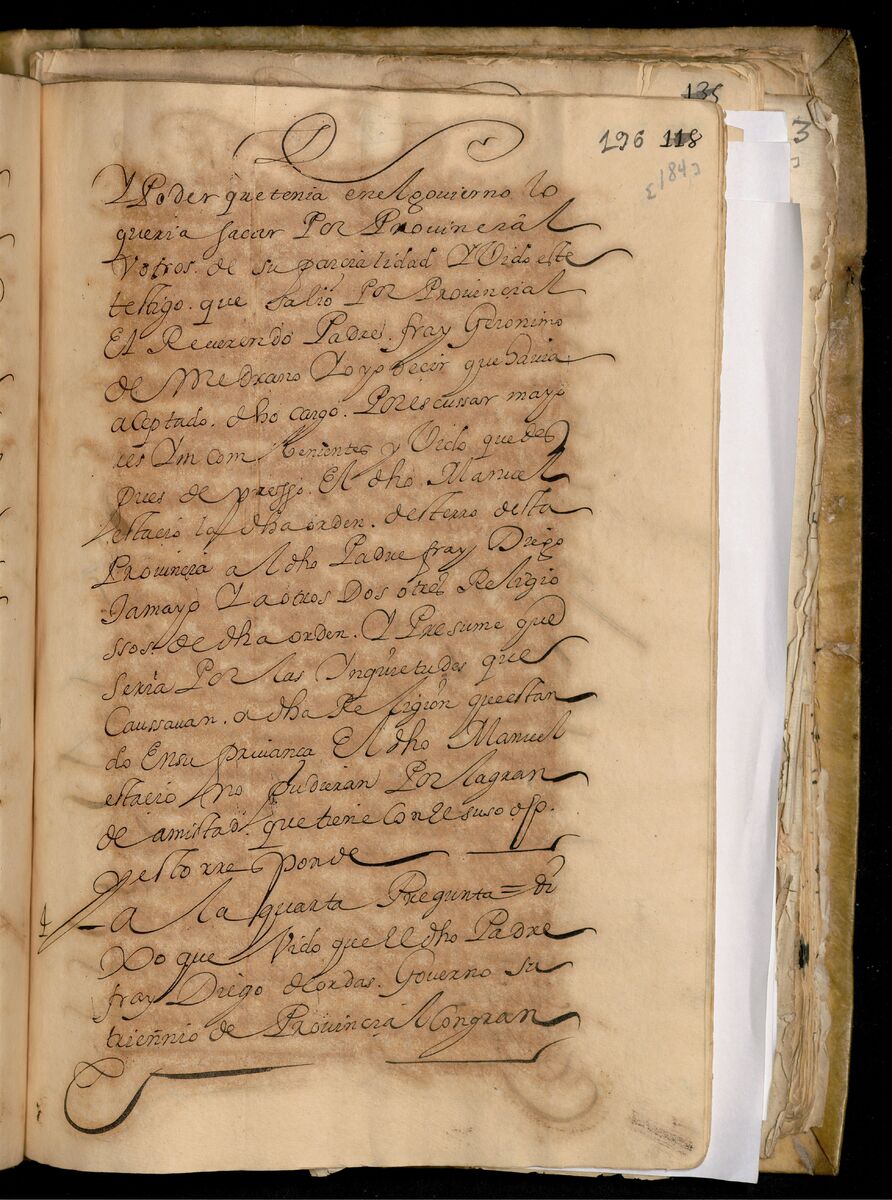 135
196 118
[184]
3
Y Poder que tenia en el govierno lo
queria sacar Por Provincial
Votros. de su parcialidad Y Vido este
testigo. que salio Por Provincial
El Reverendo Padre. fray Geronimo
de Medrano Y oyo decir que havia
aceptado. dho cargo. Por escussar mayo
res Yncombenientes y Vido que des
pues de presso. El dho Manuel
estacio la dha orden. desterro desta
Provincia al dho Padre fray Diego
Tamayo Y a otros Dos o tres Religio
ssos. de dha orden. Y Presume que
seria Por las Ynquietudes que
Caussavan. a dha Religion que estan
do En su privança El dho Manuel
estacio no pudieran Por la gran
de amistad. que tiene Con El suso dho.
Y esto rresponde
4 – A la quarta Pregunta = di
Xo que Vido que El dho Padre
fray Diego de ordas. Governo su
triennio de Provincial Con gran